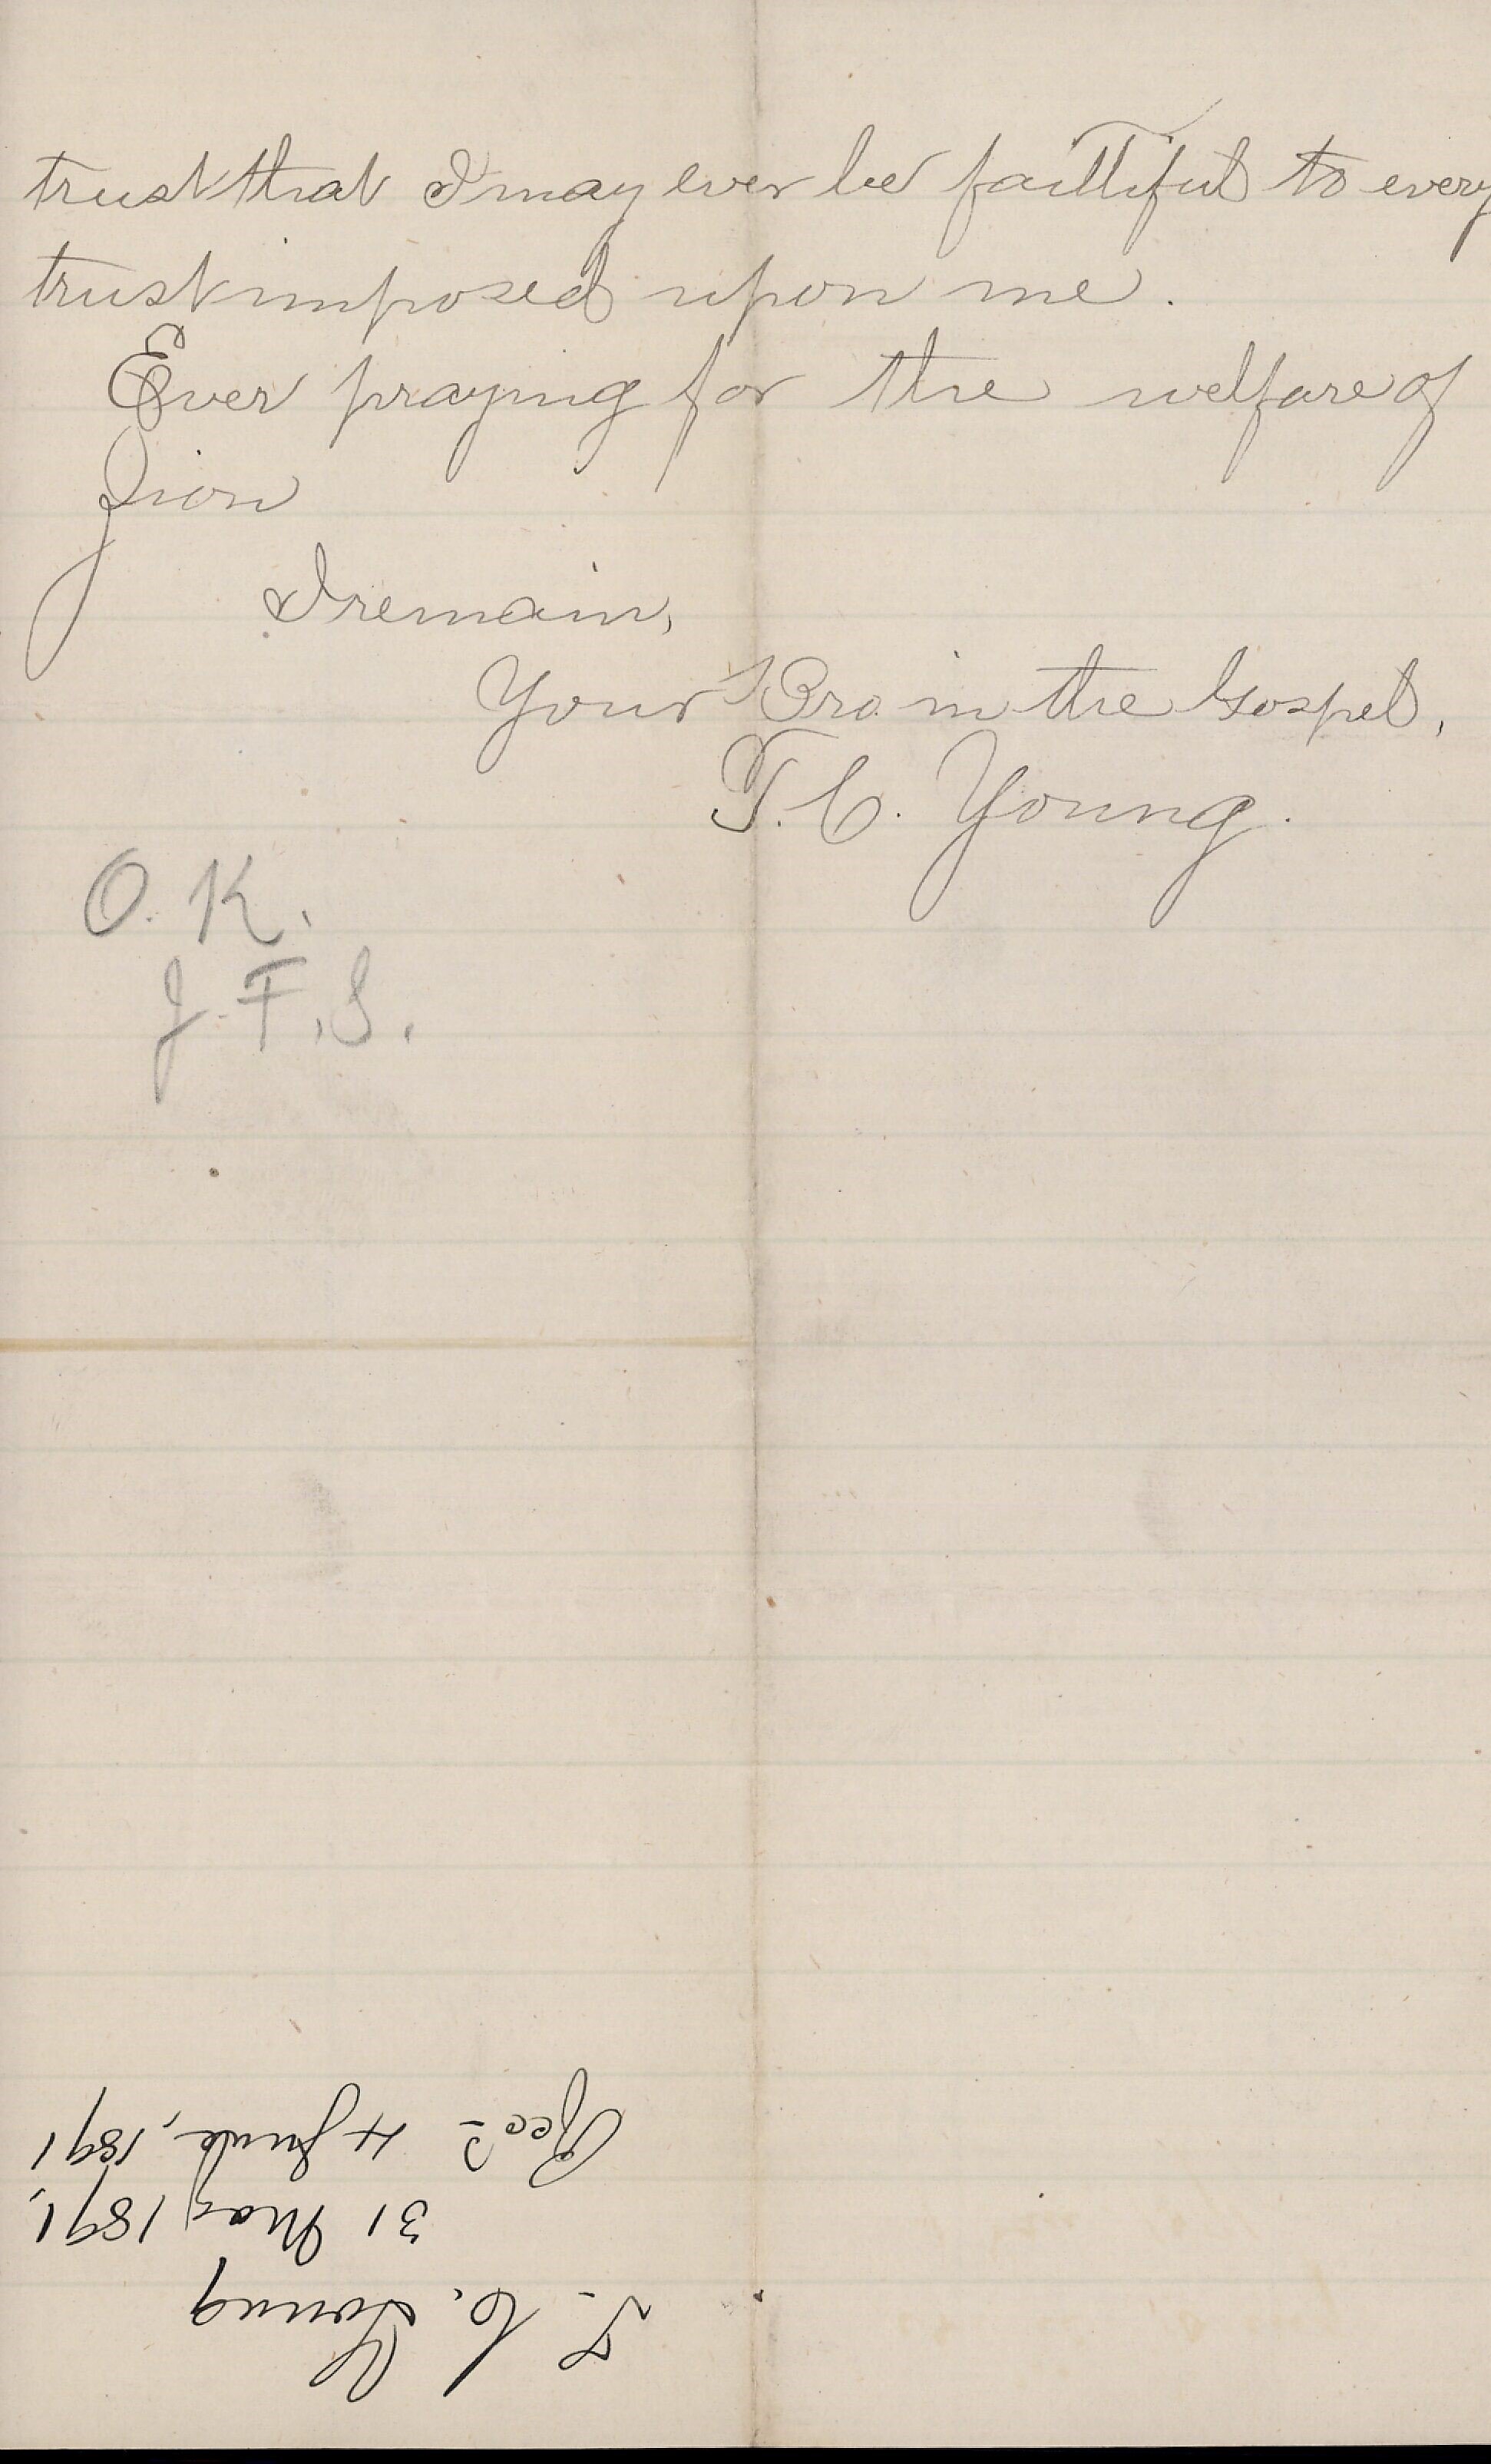 trust that I may ever be faithful to every
trust imposed upon me.
Ever praying for the welfare of
Zion
I remain,
Your Bro. in the Gospel,
T. C. Young.
O. K.
J. F. S.
T. C. Young
31 May 1891,
Recd 4 June, 1891